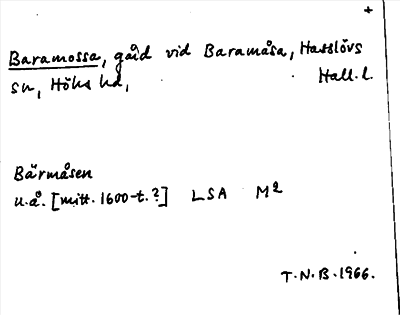 +
Baramossa, gård vid Baramåsa, Hasslövs
sn, Höks hd, Hall. l.
Bärmåsen
u.å. [mitt. 1600-t.?] LSA M²
T.N.B. 1966.